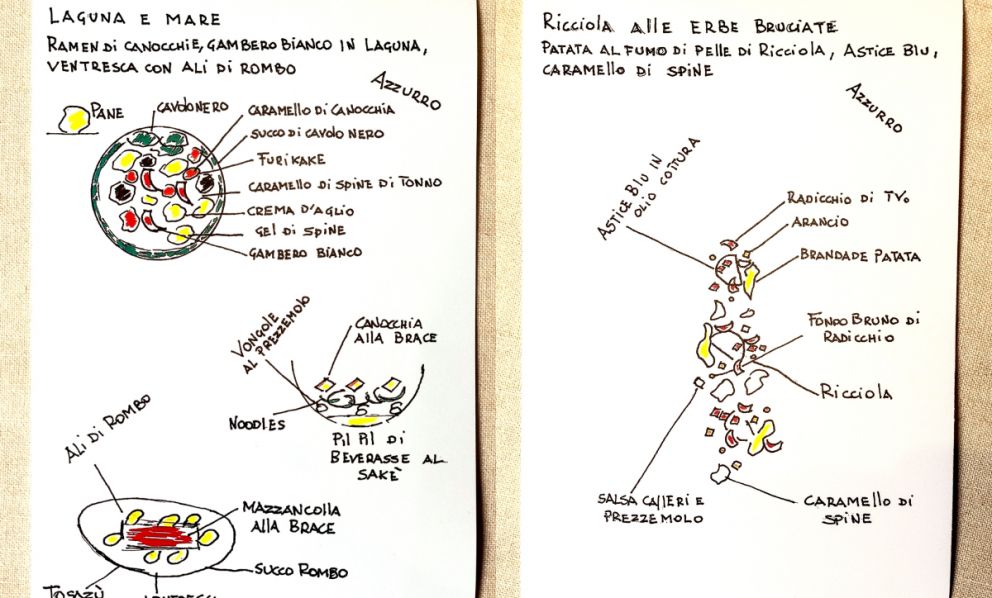 LAGUNA E MARE
RAMEN DI CANOCCHIE, GAMBERO BIANCO IN LAGUNA,
VENTRESCA CON ALI DI ROMBO
AZZURRO
PANE
CAVOLONERO
CARAMELLO DI CANOCCHIA
SUCCO DI CAVOLO NERO
FURIKAKE
CARAMELLO DI SPINE DI TONNO
CREMA D'AGLIO
GEL DI SPINE
GAMBERO BIANCO
VONGOLE
AL PREZZEMOLO
CANOCCHIA
ALLA BRACE
NOODLES
PIL PIL DI
BEVERASSE AL
SAKÈ
ALI DI ROMBO
MAZZANCOLLA
ALLA BRACE
SUCCO ROMBO
TOSAZÙ
RICCIOLA ALLE ERBE BRUCIATE
PATATA AL FUMO DI PELLE DI RICCIOLA, ASTICE BLU,
CARAMELLO DI SPINE
AZZURRO
ASTICE BLU IN
OLIO COTTURA
RADICCHIO DI TV.
ARANCIO
BRANDADE PATATA
FONDO BRUNO DI
RADICCHIO
RICCIOLA
SALSA CAFFERI E
PREZZEMOLO
CARAMELLO DI
SPINE